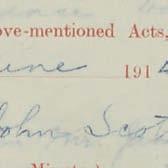 ove-mentioned Acts,
une 1914
John Scot